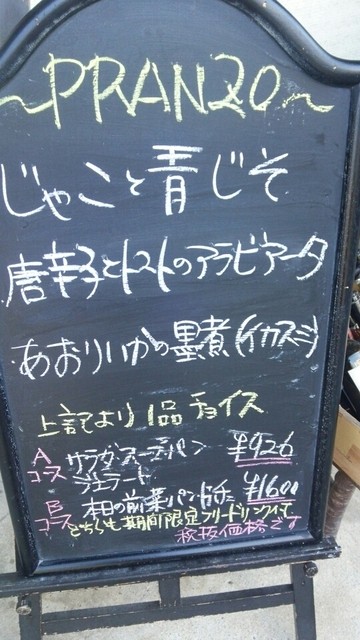 ~PRANZO~
じゃこと青じそ
唐辛子とトマトのアラビアータ
あおりいかの墨煮(イカスミ)
上記より1品チョイス
Aコース サラダ・スープ・パン ¥926
ジェラート
Bコース 本日の前菜・パン ¥1600
どちらも期間限定フリードリンク
税抜価格です